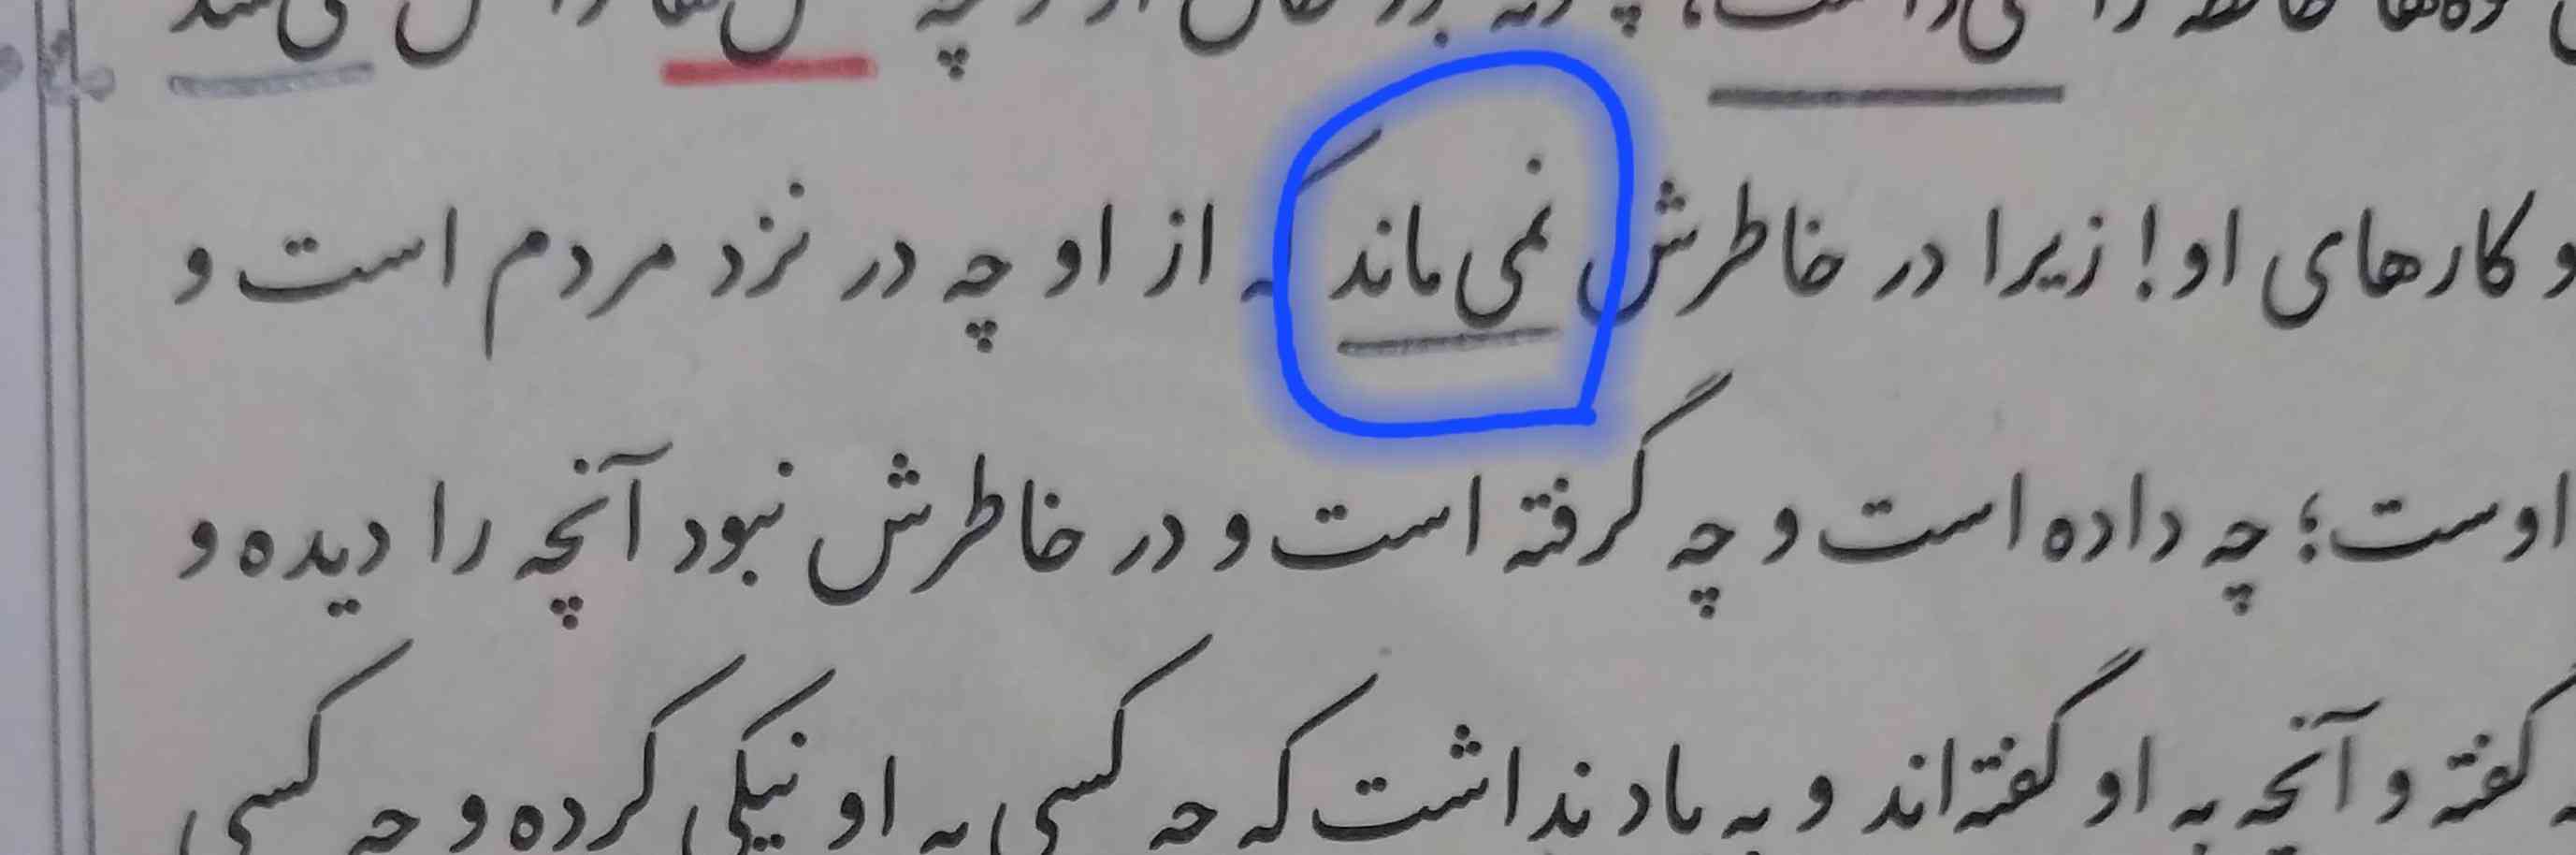 و کارهای او! زیرا در خاطرش نمی‌ماند که از او چه در نزد مردم است و
اوست؛ چه داده است و چه گرفته است و در خاطرش نبود آنچه را دیده و
گفته و آنچه به او گفته‌اند و به یاد نداشت که چه کسی به او نیکی کرده و چه کسی